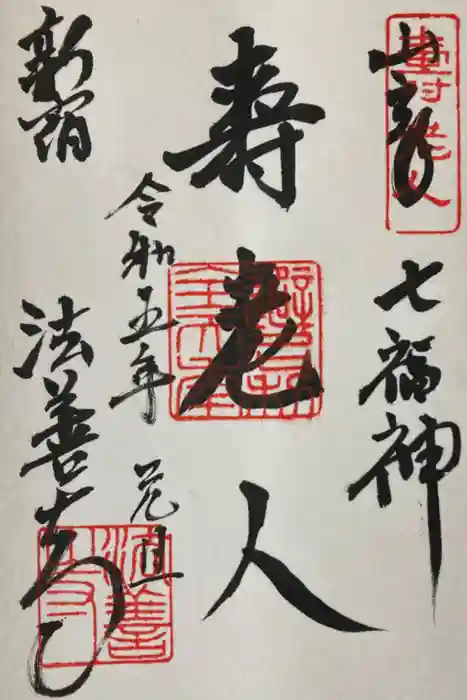 七福神
寿老人
令和五年 元旦
新宿 法善寺